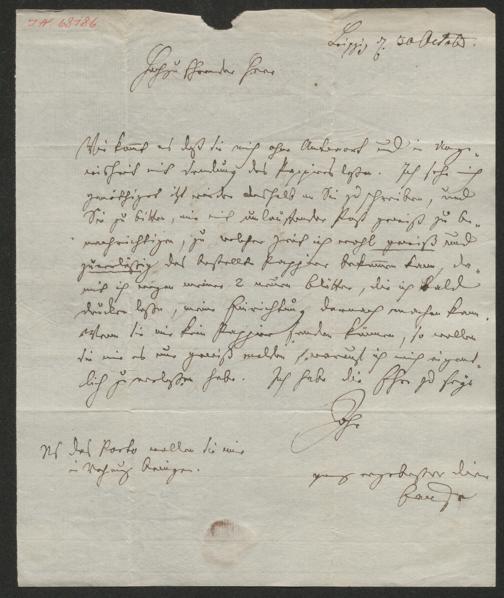 I.N. 68186
Leipzig d. 30 Octobr.
Hochzuehrender Herr
Wie kommt es daß Sie mich ohne Antwort und in Unge-
wisheit mit Sendung des Pappiers laßen. Ich sehe mich
genöthiget itzt wieder deshalb an Sie zu schreiben, und
Sie zu bitten, mir mit umlaufender Post gewiß zu be-
nachrichtigen, zu welcher Zeit ich wohl gewiß und
zuverläßig das bestellte Pappier bekommen kan, da-
mit ich wegen meiner 2 neuen Blätter, die ich bald
drucken laße, meine Einrichtung darnach machen kan.
Wenn Sie mir kein Pappier senden können, so wollen
Sie mir es nur gewiß melden, worauf ich mich eigent-
lich zu verlaßen habe. Ich habe die Ehre zu seyn
Ihr
NS das Porto wollen Sie mir
in Rechnung bringen.
ganz ergebenster Diener
Bause